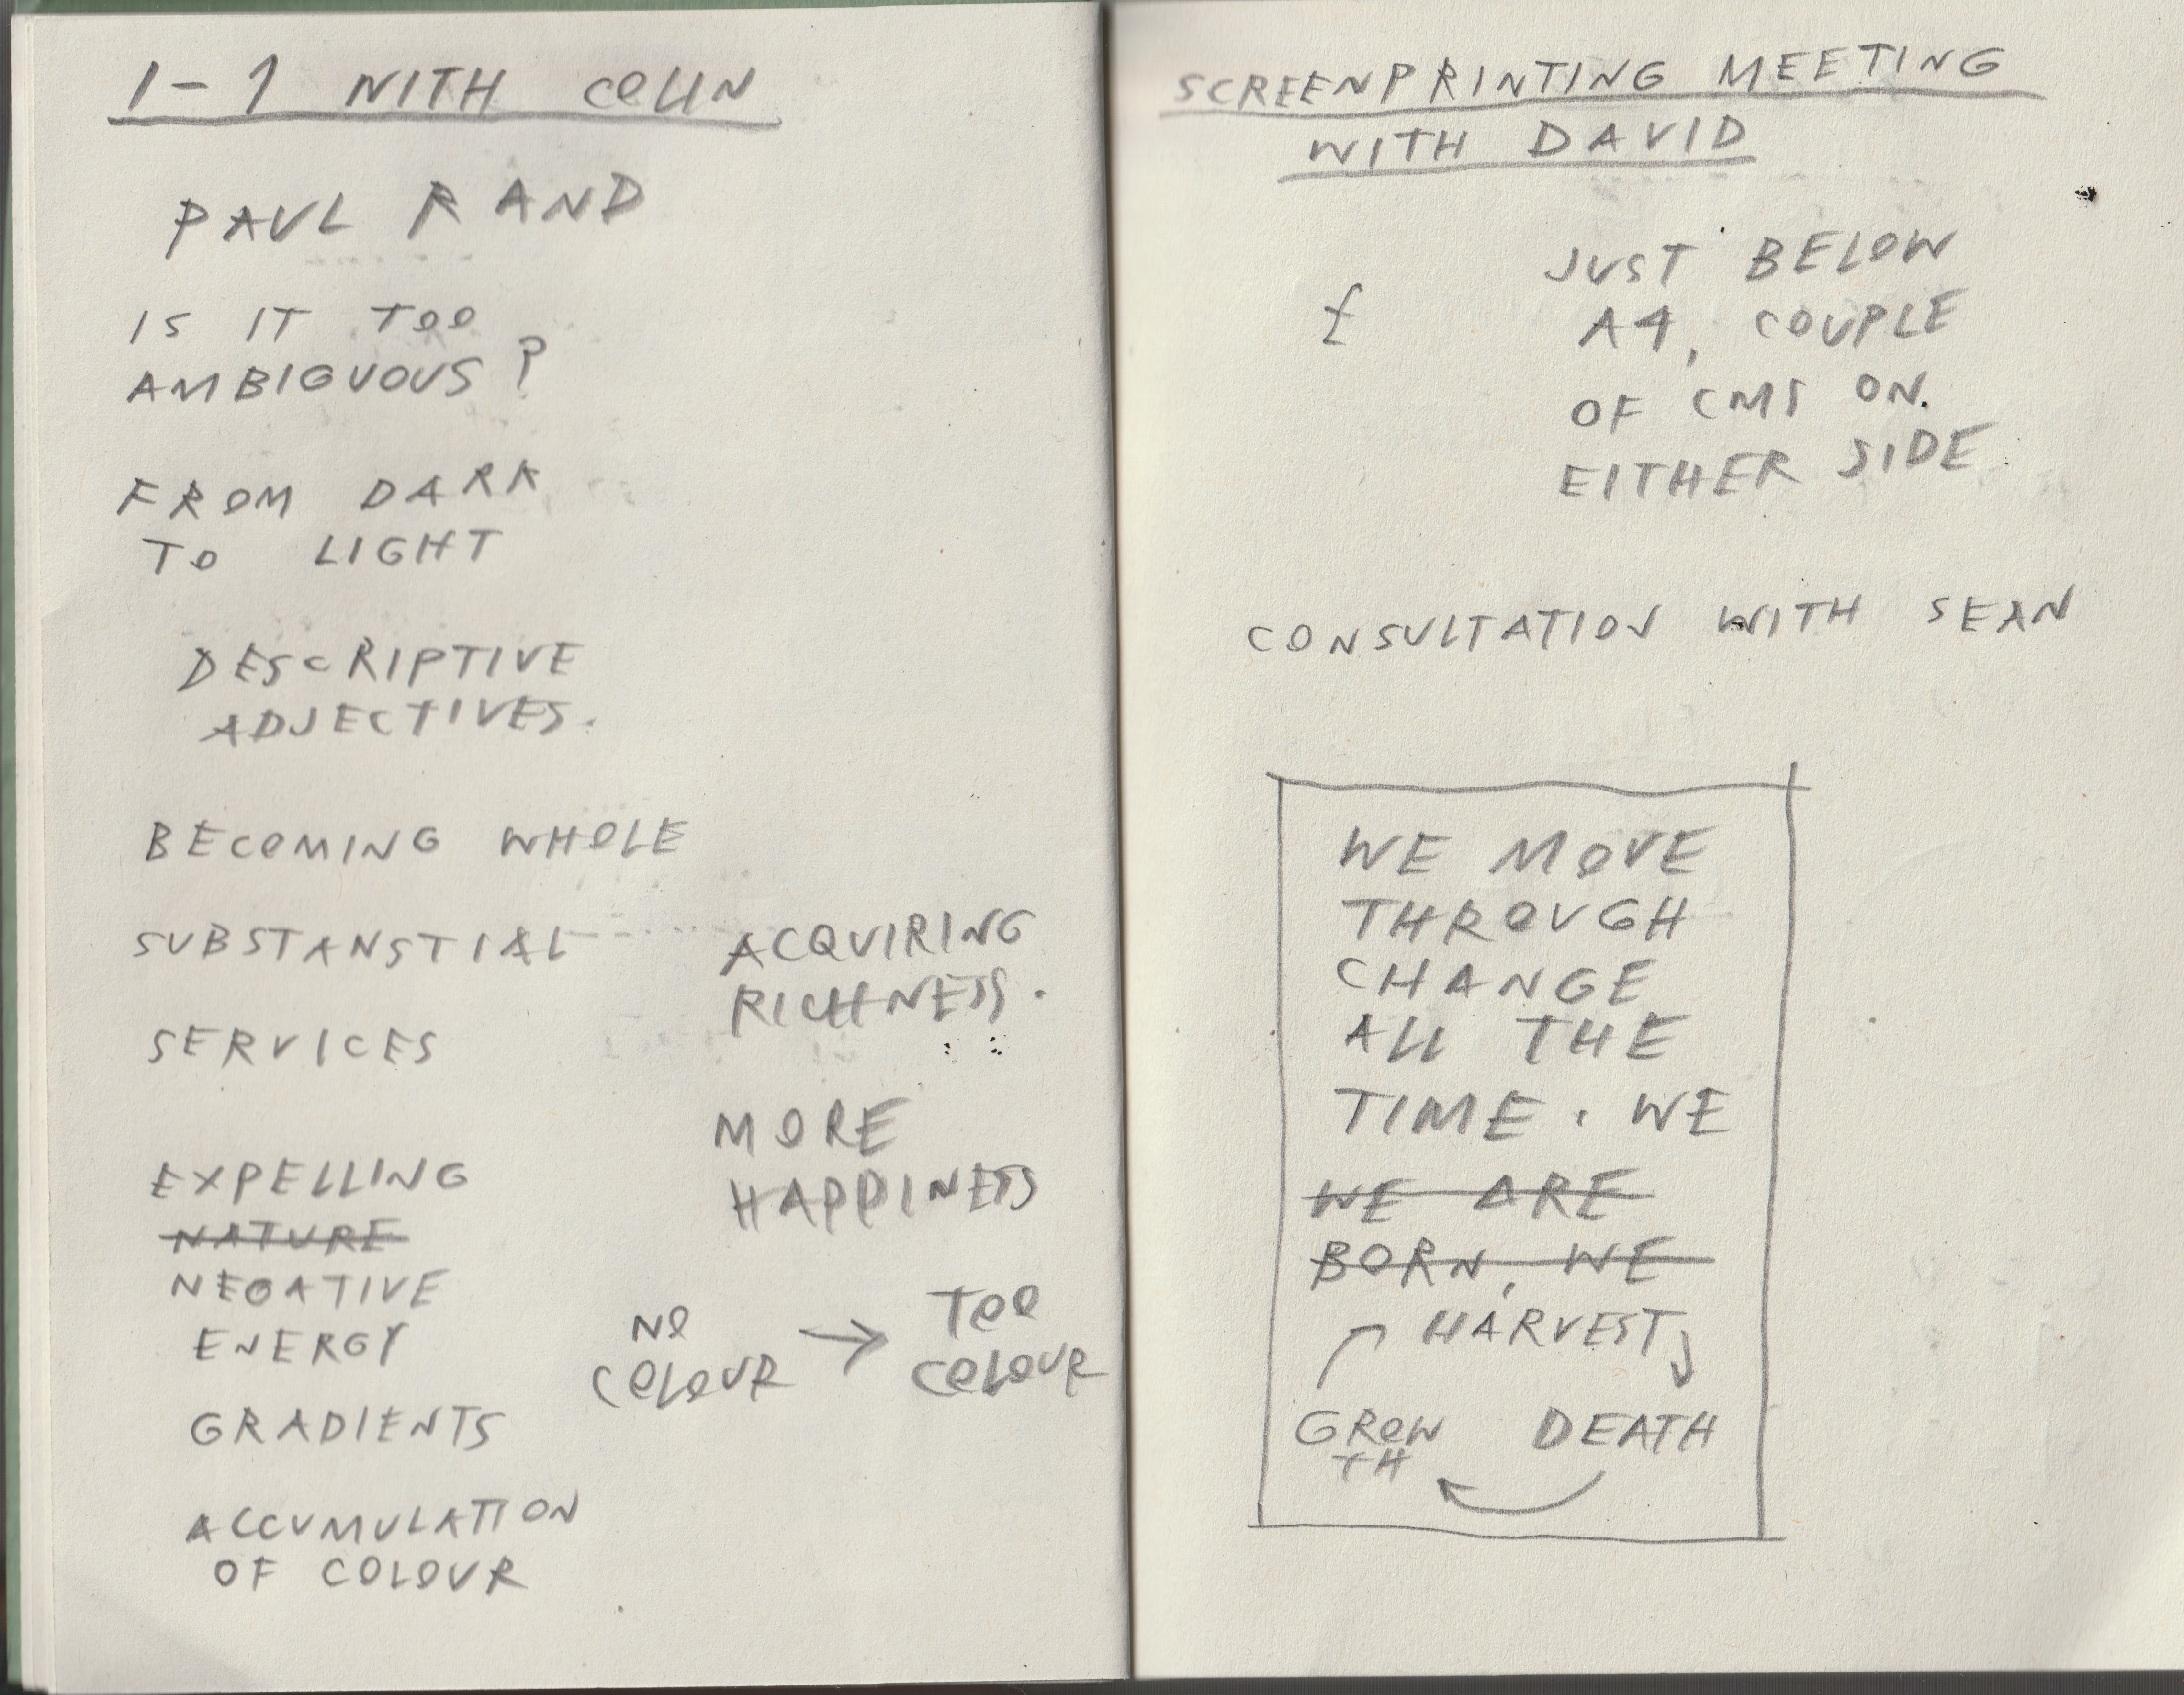 1-1 WITH COLIN
PAUL RAND
IS IT TOO
AMBIGUOUS?
FROM DARK
TO LIGHT
DESCRIPTIVE
ADJECTIVES.
BECOMING WHOLE
SUBSTANSTIAL
ACQUIRING
RICHNESS.
SERVICES
MORE
HAPPINESS
EXPELLING
NATURE
NEGATIVE
ENERGY
NO
COLOUR
→
TOO
COLOUR
GRADIENTS
ACCUMULATION
OF COLOUR
SCREENPRINTING MEETING
WITH DAVID
£
JUST BELOW
A4, COUPLE
OF CMS ON
EITHER SIDE
CONSULTATION WITH SEAN
WE MOVE
THROUGH
CHANGE
ALL THE
TIME. WE
WE ARE
BORN, WE
HARVEST
GROW
TH
DEATH